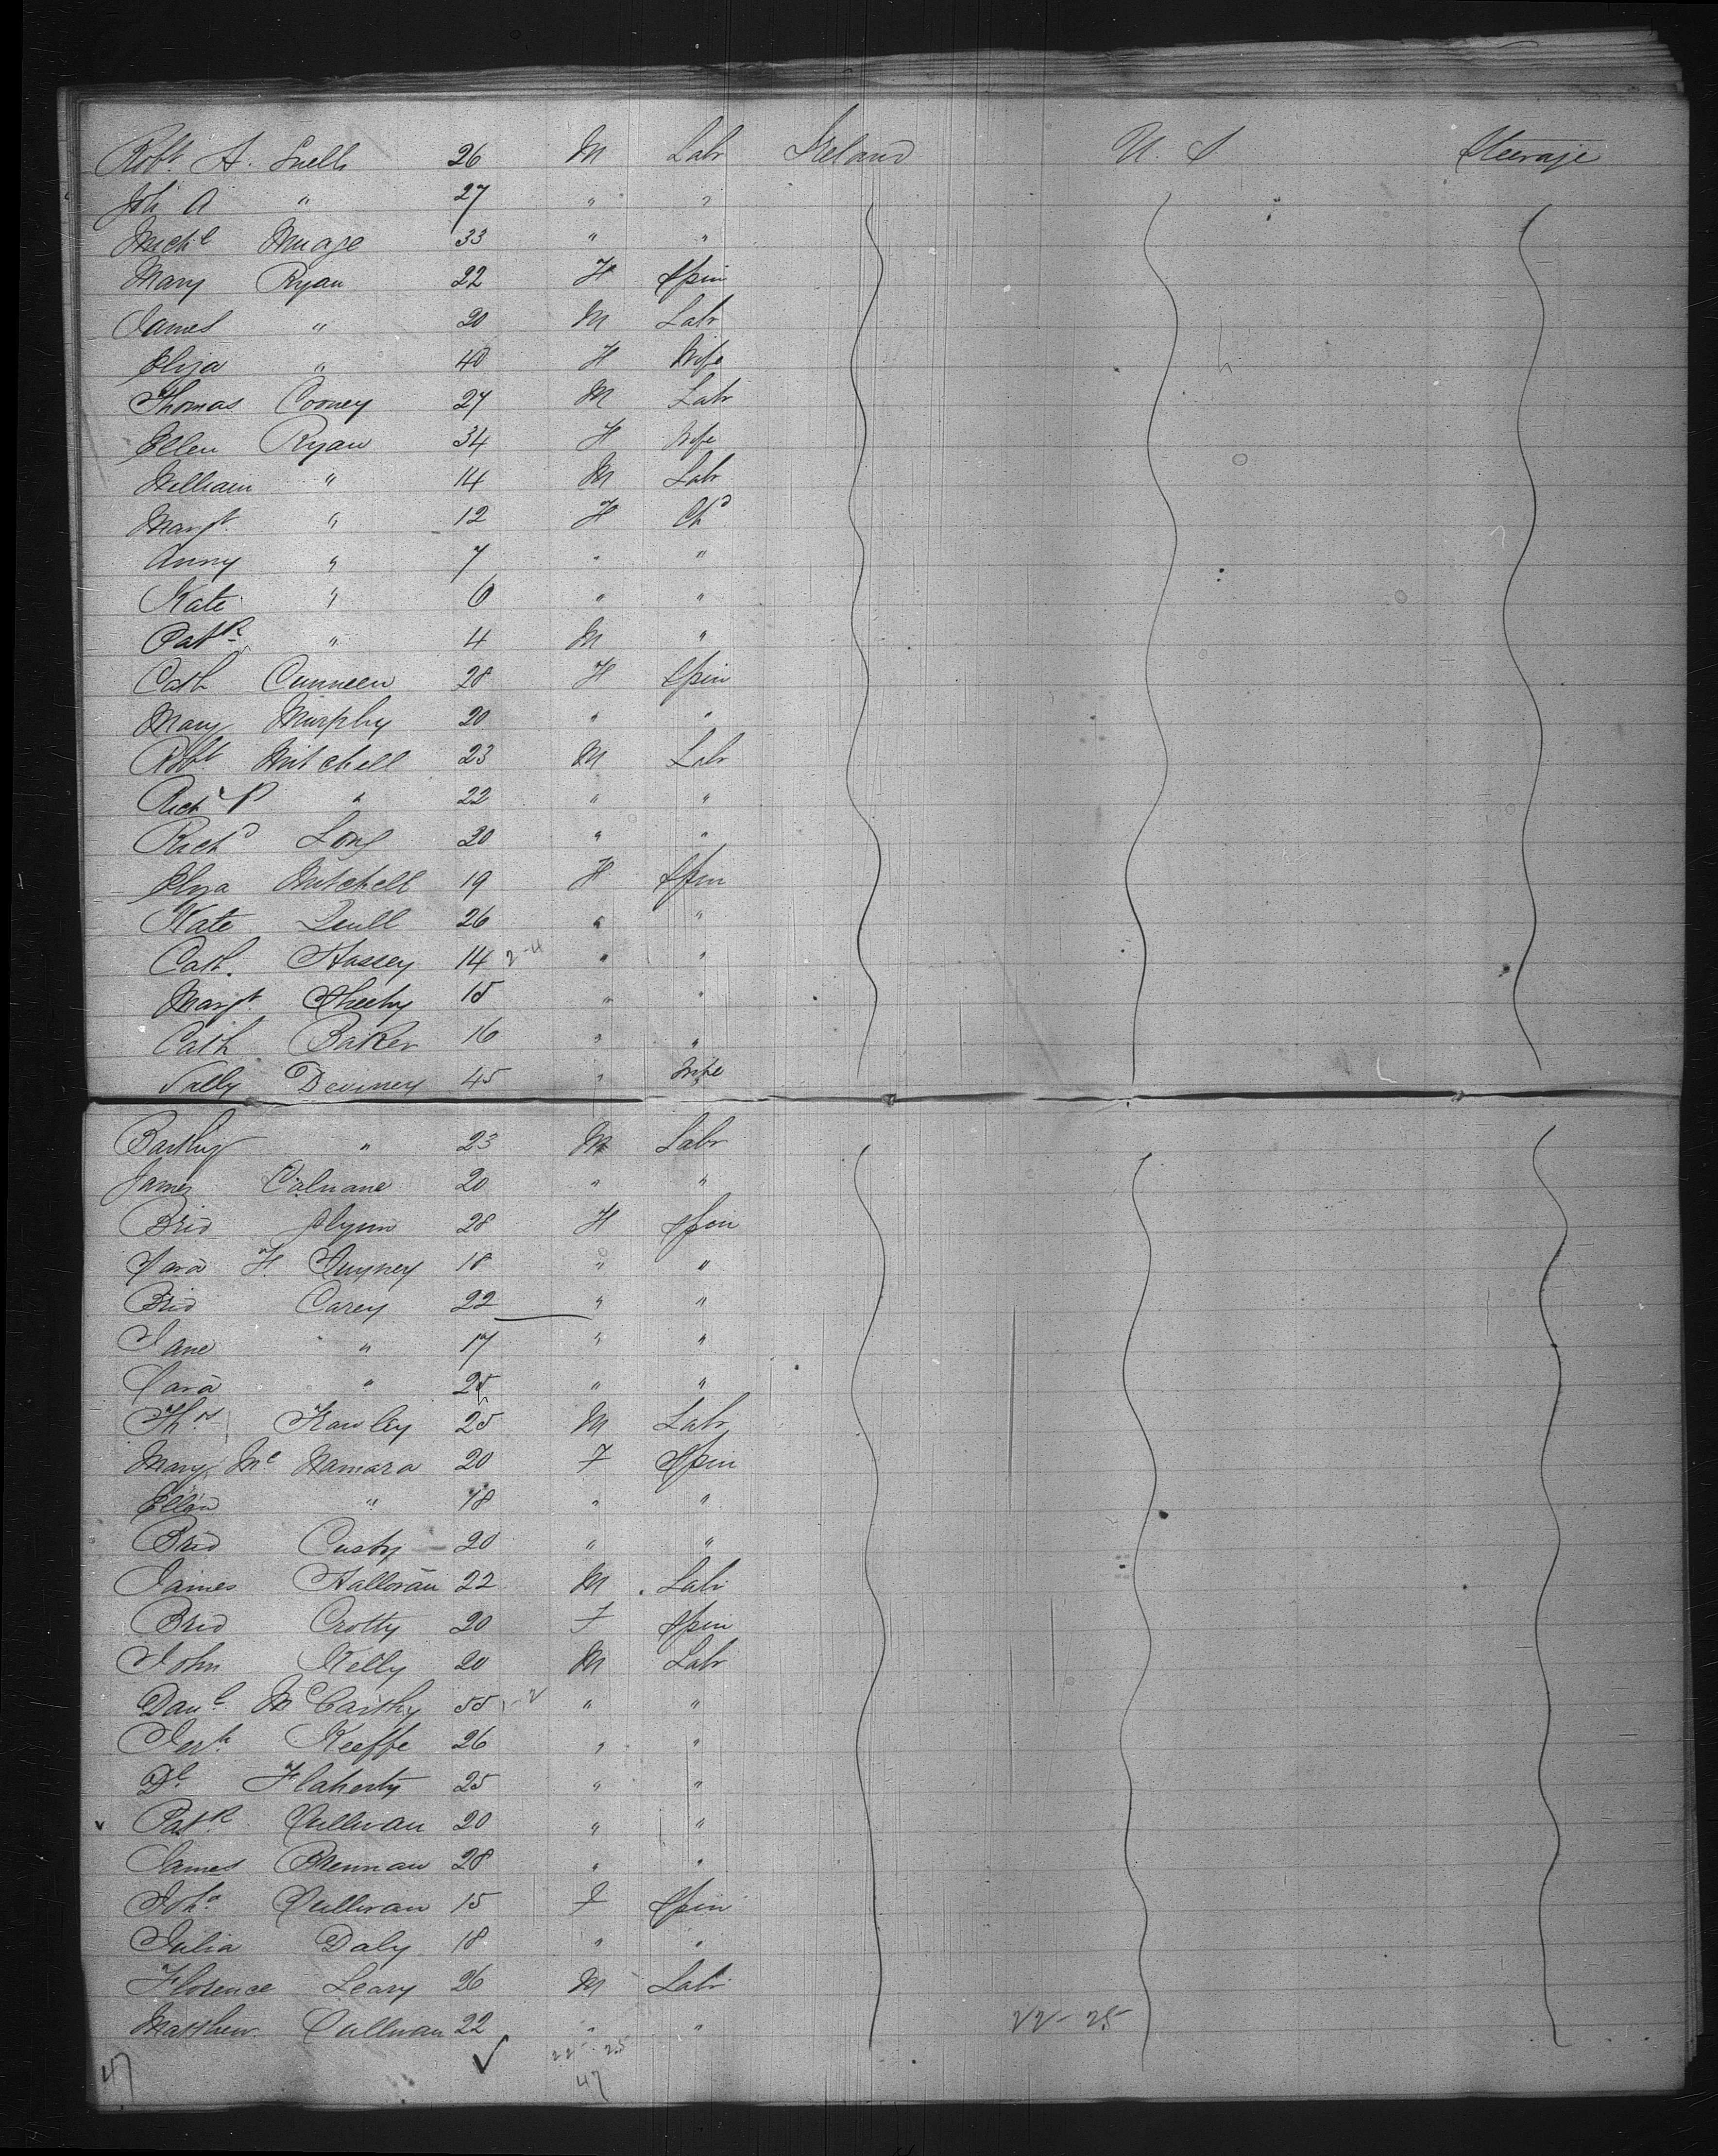 Robt. A. Snell 26 M Labr Ireland U. S Steerage
Joh A " 27 " "
Michl 33 " "
Mary Ryan 22 F Spin
James " 20 M Labr
Eliza " 40 F Wife
Thomas Cooney 27 M Labr
Ellen Ryan 34 F Wife
William " 14 M Labr
Margt. " 12 F Chd
Anny " 7 " "
Kate " 6 " "
Patk " 4 M "
Cath Cunneen 28 F Spin
Mary Murphy 20 " "
Robt Mitchell 23 M Labr
Richd P " 22 " "
Richd Long 30 " "
Eliza Mitchell 19 F Spin
Kate 26 " "
Cath. Hassey 14 " "
Margt. Sheehy 15 " "
Cath Baker 16 " "
Sally Deviney 45 " Wife
Barthy " 23 M Labr
James 20 " "
Brid Flynn 28 F Spin
Sara F. 18 " "
Brid Carey 22 " "
Jane " 17 " "
Sara " 25 " "
Thos 25 M Labr
Mary Mc Namara 20 F Spin
Ellen " 18 " "
Brid 20 " "
James Halloran 22 M Labr
Brid Crotty 20 F Spin
John Kelly 20 M Labr
Danl. McCarthy 55 " "
Jerh. Keeffe 26 " "
Dl. Flaherty 25 " "
Patk. Sullivan 20 " "
James Brennan 28 " "
Joha Sullivan 15 F Spin
Julia Daly 18 " "
Florence Leary 26 M Labr
Matthew Sullivan 22 " "
22-25
47 22-25
47